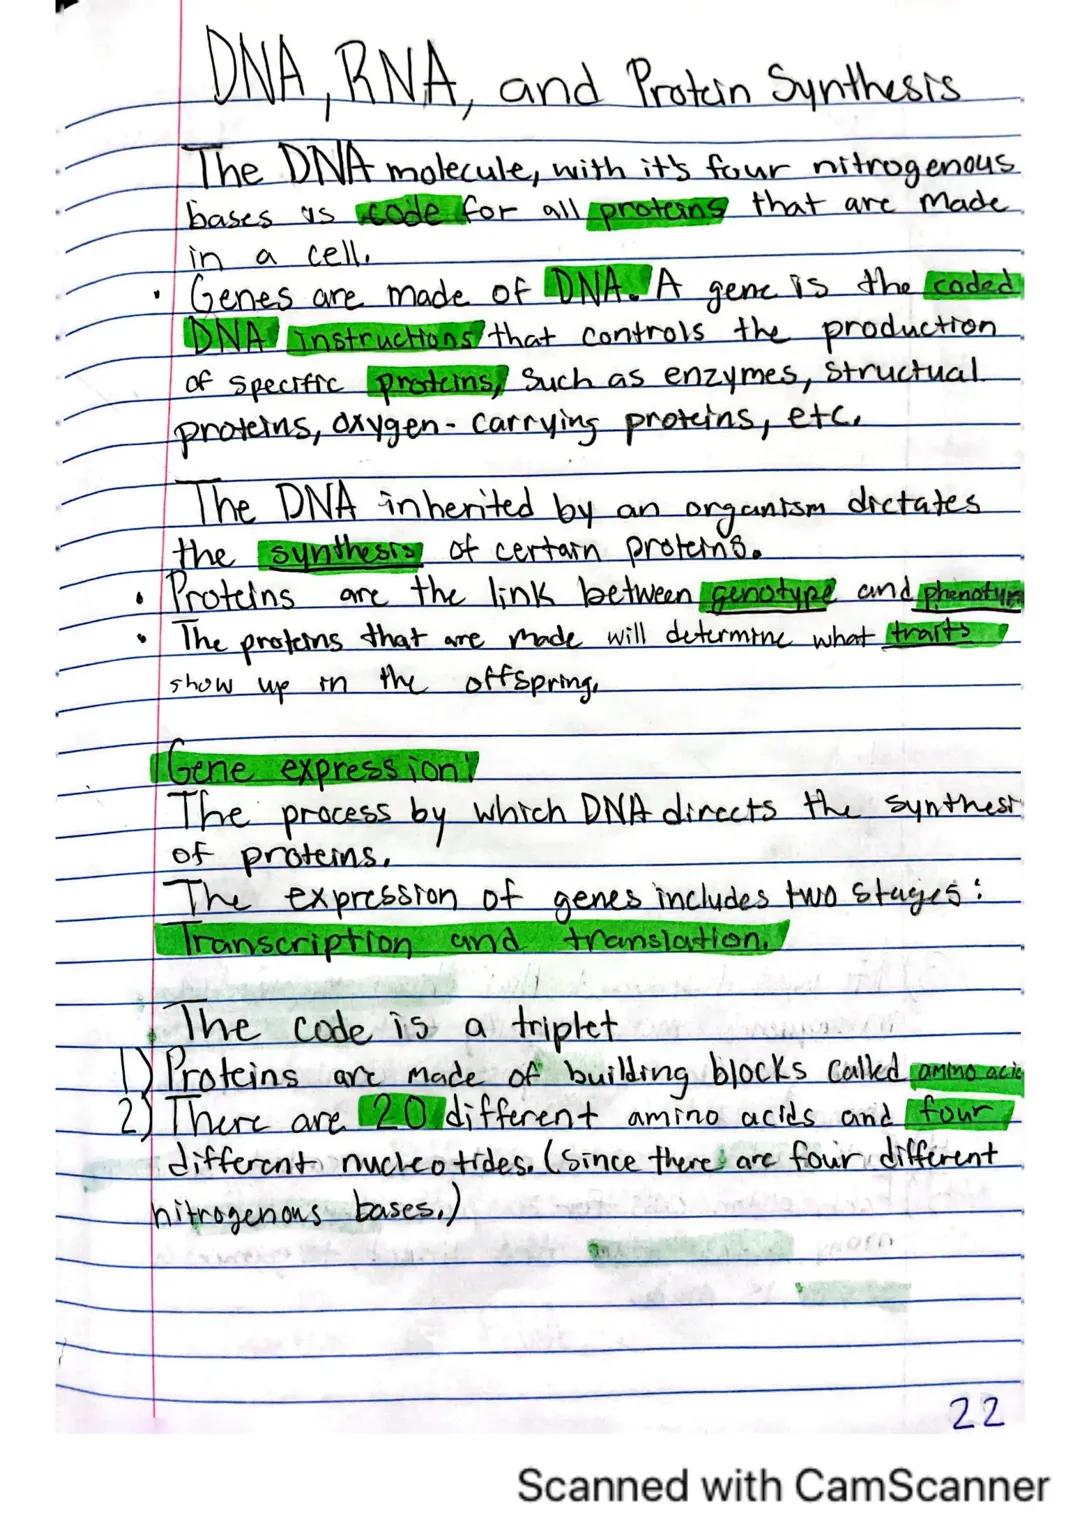 DNA, RNA, and Protein Synthesis
The DNA molecule, with it's four nitrogenous
bases is code for all proteins that are made
in a cell.
• Genes are made of DNA. A gene is the coded
DNA instructions that controls the production
of specific proteins, such as enzymes, structual
proteins, oxygen-carrying proteins, etc.
The DNA inherited by an organism dictates
the synthesis of certain proteins.
• Proteins are the link between genotype and phenotyp
• The proteins that are made will determine what traits
show up in the offspring.
Gene expression:
The process by which DNA directs the synthesi
of proteins.
The expression of genes includes two stages:
Transcription and translation.
The code is a triplet
1) Proteins are made of building blocks called amino acid
2) There are 20 different amino acids and four
different nucleotides. (Since there are four different
nitrogenous bases.)
22
Scanned with CamScanner